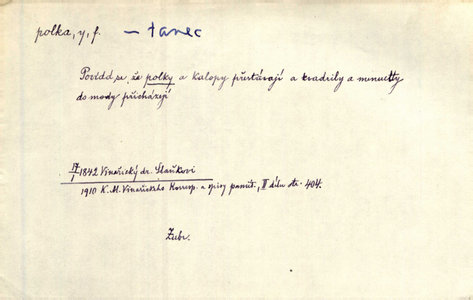 polka, y, f. – tanec
Povídá se, že polky a kalopy přestávají a kvadrily a menuetty
do mody přicházejí
17/1 1842 Vinařický dr. Staňkovi
1910 K. M. Vinařického Korresp. a spisy pamět., II dílu str. 404.
Zubr.